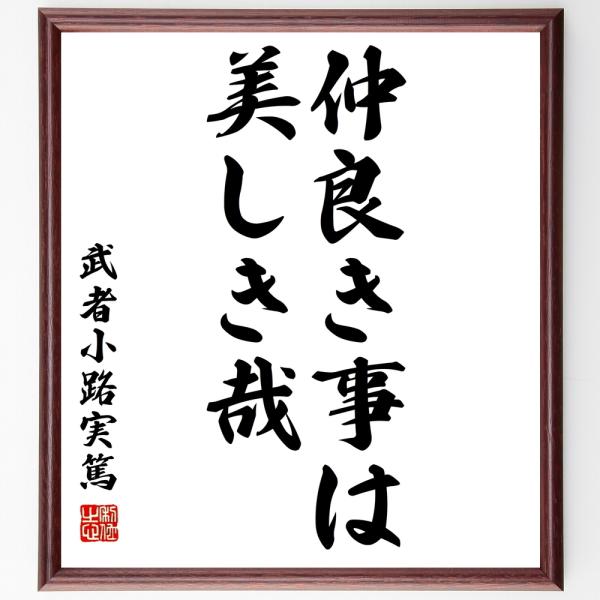 仲良き事は
美しき哉
武者小路実篤